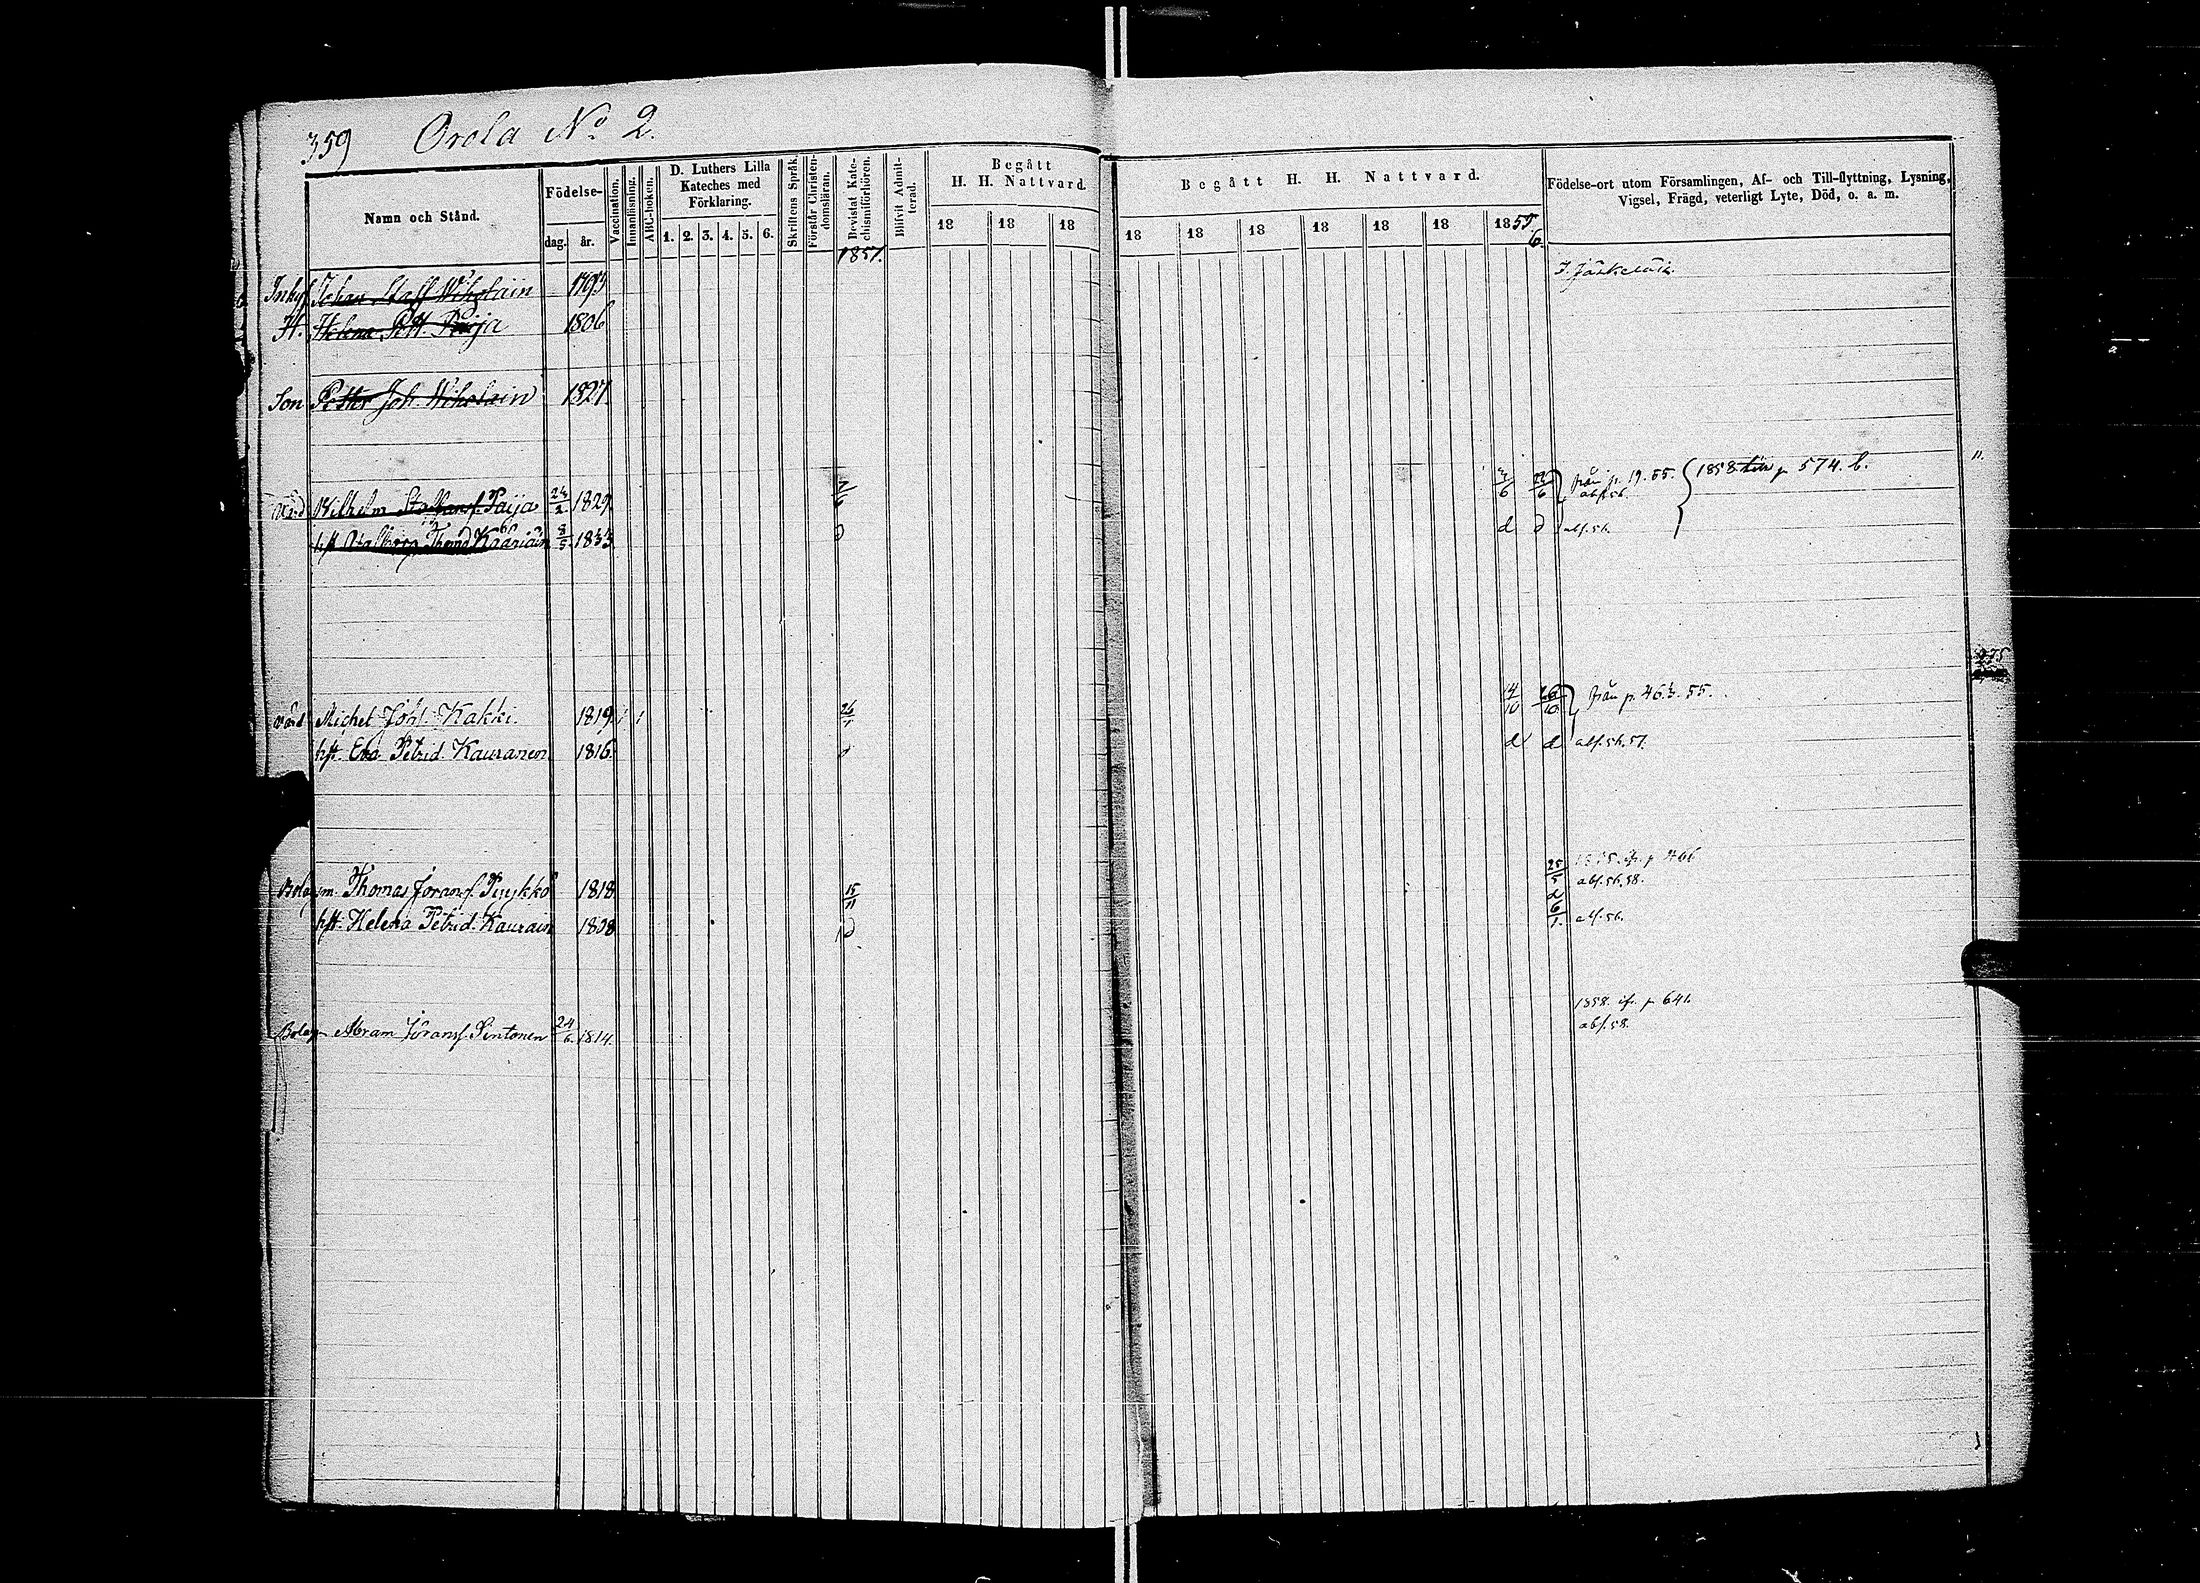 359 Orola No 2.
Namn och Stånd. Födelse- dag. år. Vaccination. Innanläsning. ABC-boken. D. Luthers Lilla Kateches med Förklaring. 1. 2. 3. 4. 5. 6. Skriftens Språk. Förstår Christendomsläran. Bevistat Katechismiförhören. Blifvit Admitterad. Begått H. H. Nattvard. 18 18 18
Begått H. H. Nattvard. 18 18 18 18 18 18 1855 6. Födelse-ort utom Församlingen, Af- och Till-flyttning, Lysning, Vigsel, Frägd, veterligt Lyte, Död, o. a. m.
1857.
Inhys Johan Staff Wiholain 1793
H. Helena Pett. Paija 1806
Son Petter Joh. Wiholain 1827.
Värd Wilhelm Staffansf. Paija 24/2 1829. 7/6 22/6 från p. 19. 55. 1858 p 574. b.
abs. 56.
hst Walborg Thomd Kääriäin 8/5 1833 d d d abs. 56.
Värd Michel Kakki. 1819. 26/1 14/10 26/10 från p. 463. 55.
hst. Eva Petrid. Kauranen 1816. d d d abs. 56. 57.
Bolagsm. Thomas Göransf. Puykkö 1818 15/11 25/5
abs. 56, 58.
hst. Helena Petrid. Kaurain 1808 d abs. 56.
1858. ifr. p 641.
Bolagsm Abram Göransf. Sintonen 24/6. 1814. abs. 58.